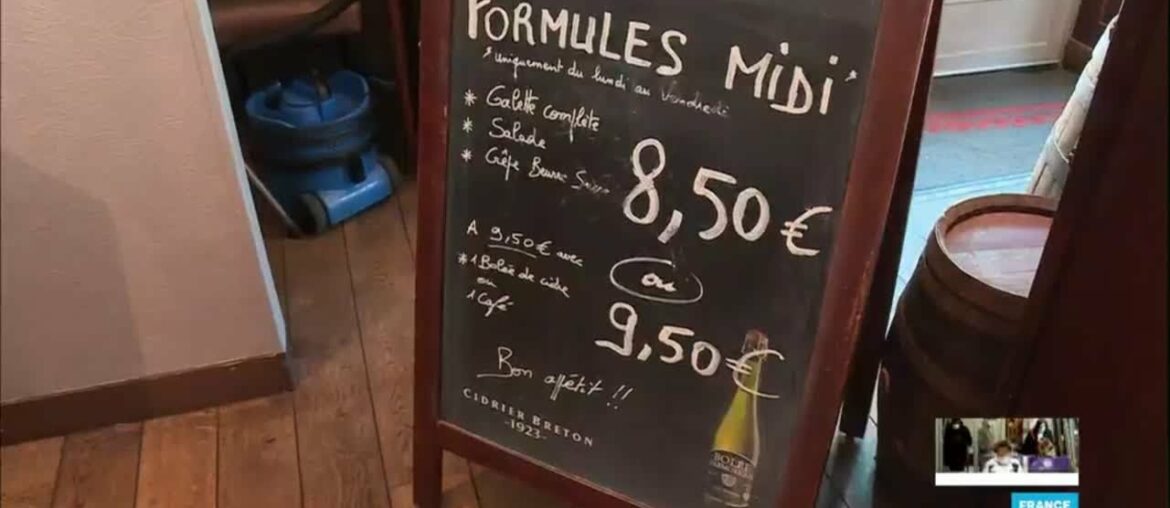 FORMULES MIDI*
*uniquement du lundi au vendredi
* Galette complète
* Salade
* Crêpe Beurre Sucre
8,50 €
A 9,50€ avec
* 1 Bolée de cidre
ou
1 Café
ou
9,50€
Bon appétit !!
CIDRIER BRETON
-1923-
BOLÉE
FRANCE